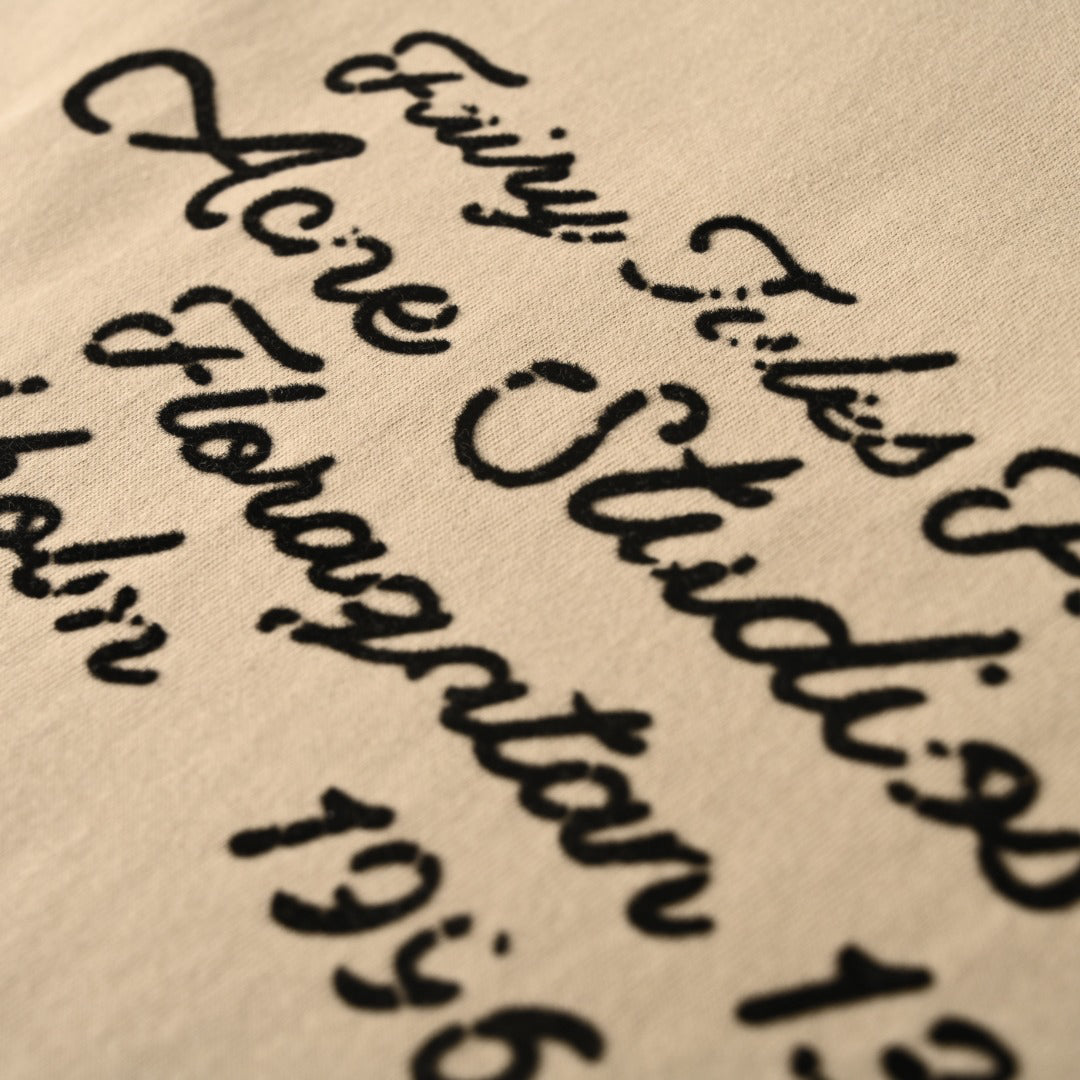 Fairy Tales F
Acne Studios
Floragatan 13
holm 1996